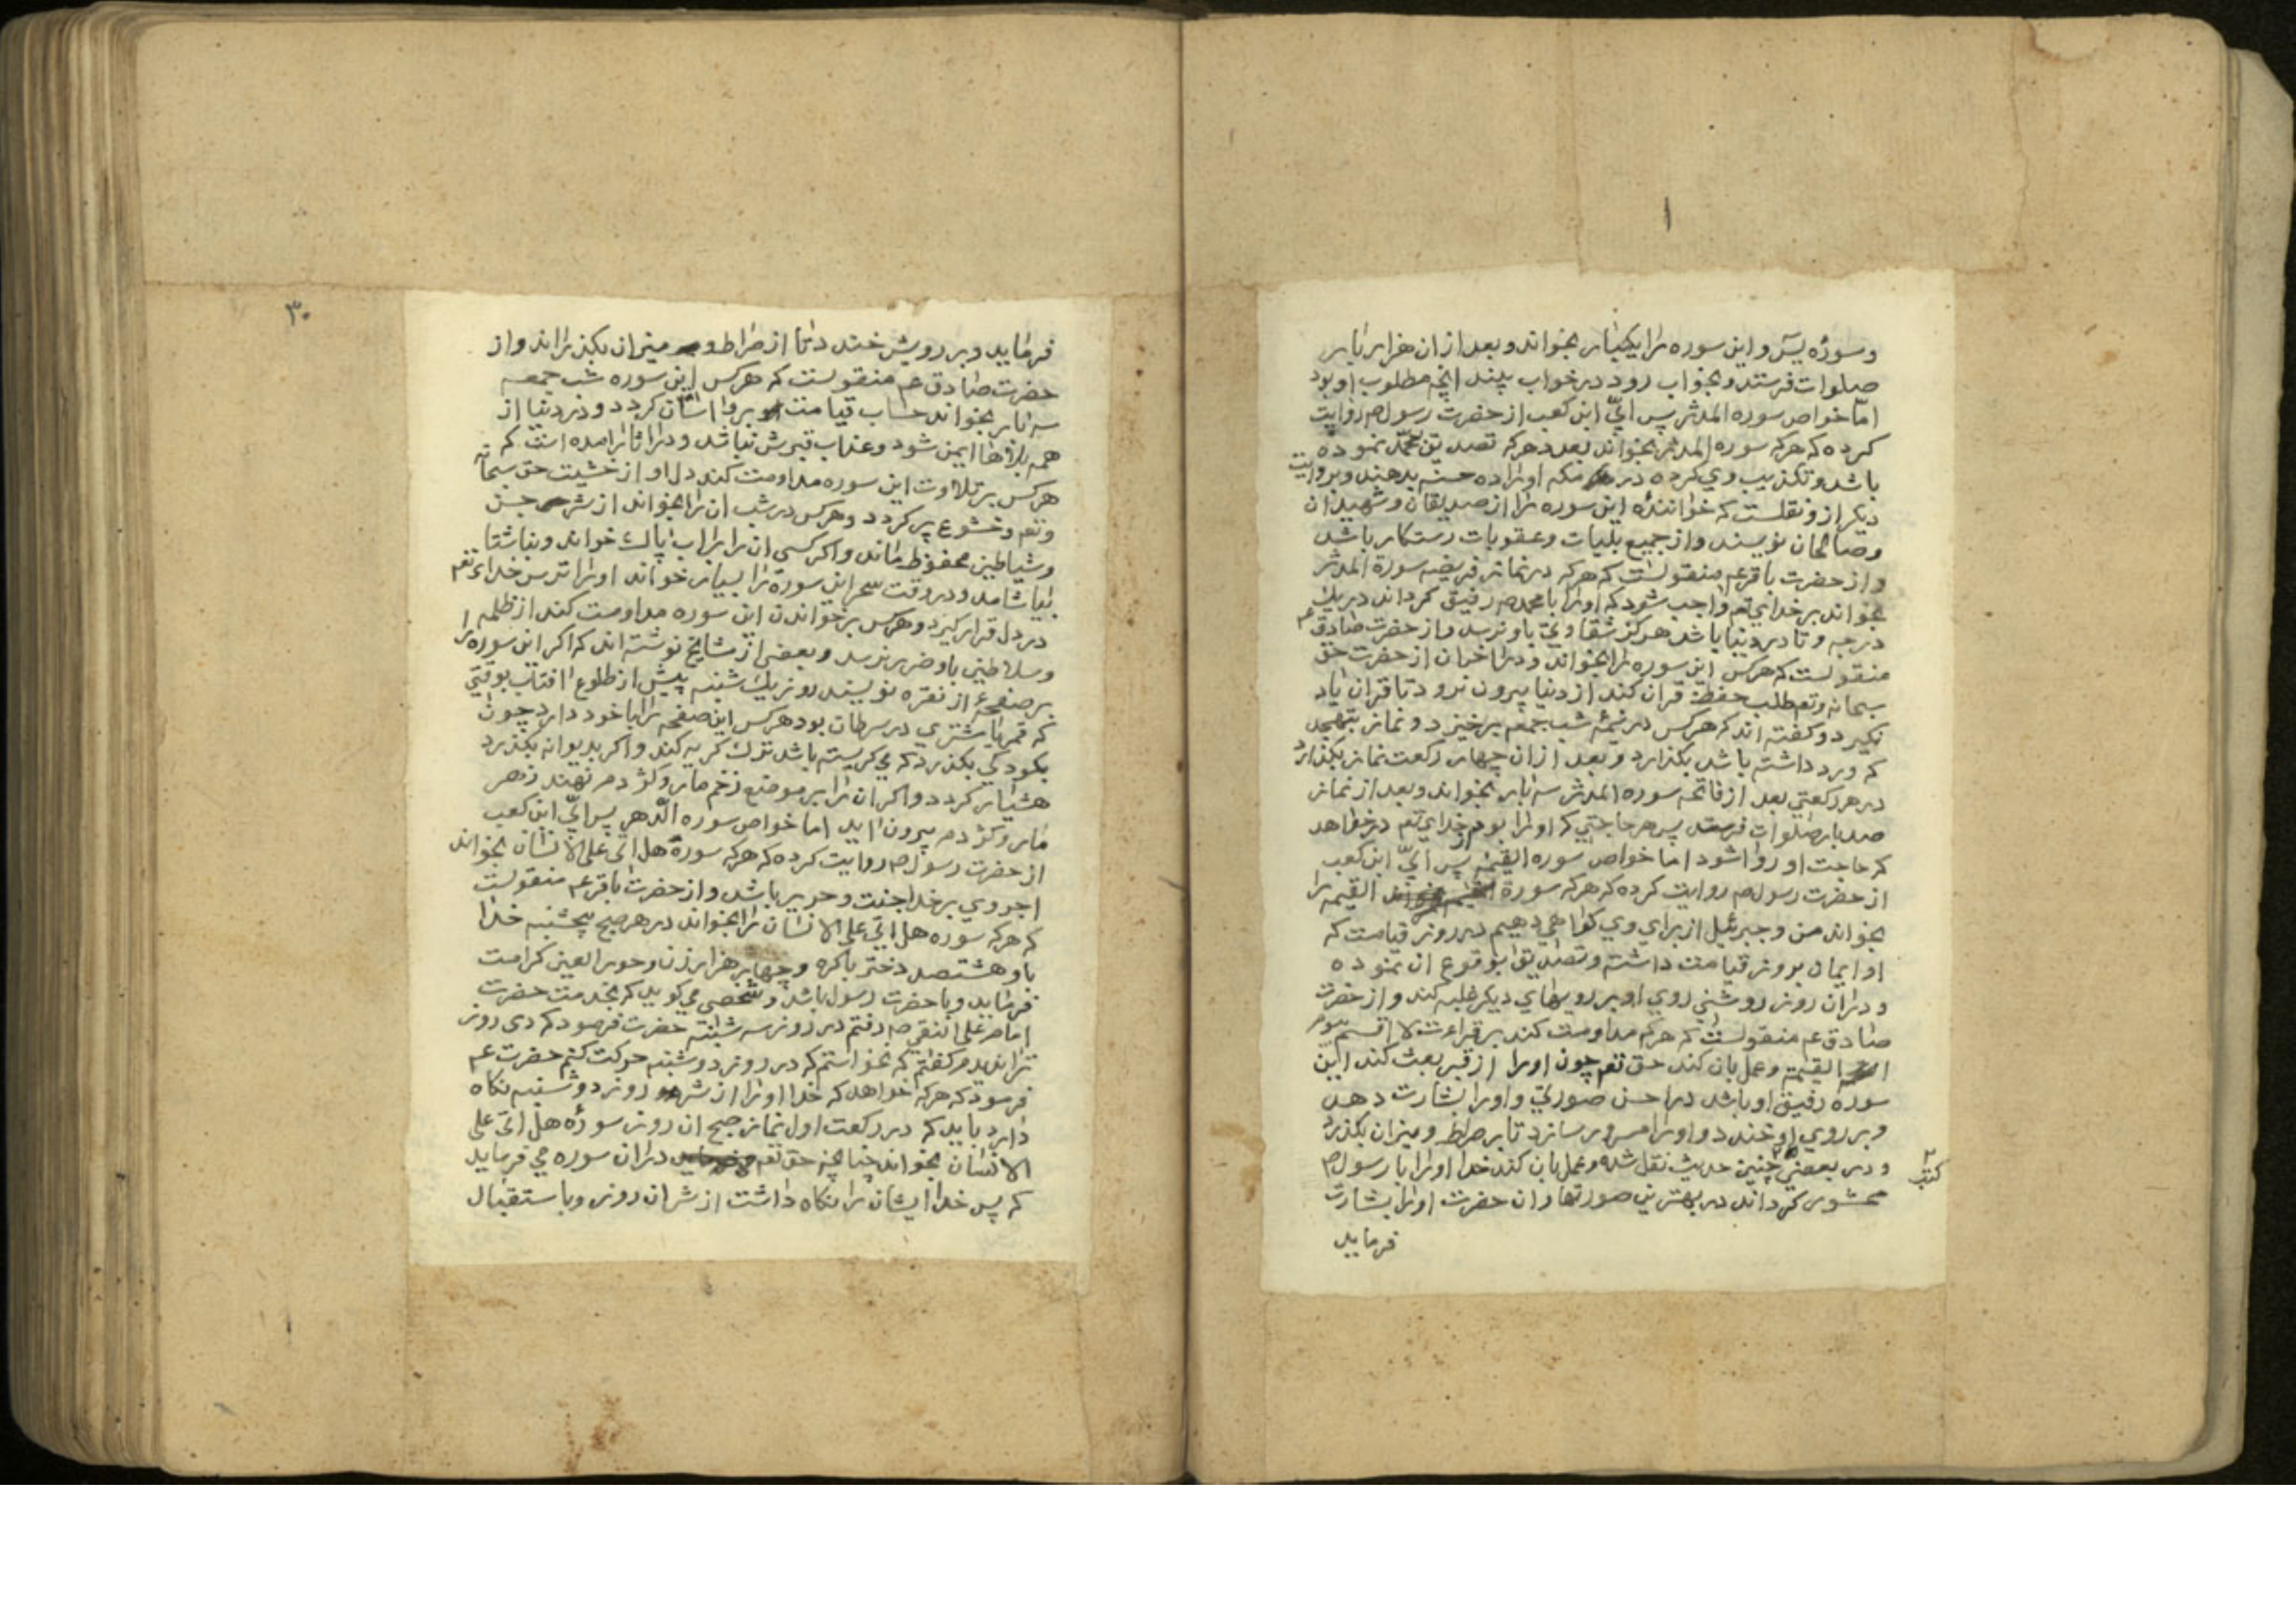 ۱
وسورۀ یس و این سوره را یکبار بخواند و بعد از ان هزار بار
صلوات فرستد و بخواب رود در خواب بیند انچه مطلوب او بود
امّا خواص سوره المدثر پس ابیّ ابن کعب از حضرت رسول ص روایت
کرده که هرکه سوره المدثر بخواند بعدد هرکه تصدیق محمّد نموده
باشد و تکذیب وی کرده در مکه او را ده حسنه بدهند و بروایت
دیکر از و نقلست که خوانندۀ این سوره را از صدیقان و شهیدان
و صالحان نویسند و از جمیع بلیات و عقوبات رستکار باشد
و از حضرت باقر عم منقولست که هرکه در نماز فریضه سورة المدثر
بخواند بر خدای تع واجب شود که او را با محمد ص رفیق کرداند در یک
درجه و تا در دنیا باشد هرکز شقاوتی باو نرسد و از حضرت صادق عم
منقولست که هرکس این سوره را بخواند و در اخر ان از حضرت حق
سبحانه و تع طلب حفظ قران کند از دنیا بیرون نرود تا قران یاد
نکیرد و کفته اند که هرکس در نیمۀ شب جمعه برخیزد و نماز تهجد
که ورد داشته باشد بکذارد و بعد از ان چهار رکعت نماز بکذارد
در هر رکعتی بعد از فاتحه سوره المدثر سه بار بخواند و بعد از نماز
صد بار صلوات فرستد پس هر حاجتی که او را بود از خدای تع درخواهد
که حاجت او روا شود اما خواص سوره القیمه پس ابیّ ابن کعب
از حضرت رسول ص روایت کرده که هرکه سورة القیمه را
بخواند من و جبرئیل از برای وی کواهی دهیم در روز قیامت که
او ایمان بروز قیامت داشته و تصدیق بوقوع ان نموده
و در ان روز روشنی روی او بر رویهای دیکر غلبه کند و از حضرت
صادق عم منقولست که هرکه مداومت کند بر قراءت لا اقسم بیوم
القیمة و عمل بان کند حق تع چون او را از قبر بعث کند این
سوره رفیق او باشد در احسن صورتی و او را بشارت دهد
و بر روی او خندد و او را مسرور سازد تا بر صراط و میزان بکذرد
و در بعضی چنین حدیث نقل شده و عمل بان کند خدا او را با رسول ص
کتب
محشور کرداند در بهترین صورتها و ان حضرت او را بشارت
فرماید
۳۰
فرماید و بر رویش خندد تا از صراط و میزان بکذراند و از
حضرت صادق عم منقولست که هرکس این سوره شب جمعه
سه بار بخواند حساب قیامت بر وی اسان کردد و در دنیا از
همه بلاها ایمن شود و عذاب قبرش نباشد و در اثار امده است که
هرکس بر تلاوت این سوره مداومت کند دل او از خشیت حق سبحانه
و تع و خشوع پر کردد و هرکس در شب ان را بخواند از شر جن
و شیاطین محفوظ ماند و اکر کسی ان را بر اب پاک خواند و ناشتا
بیاشامد و در وقت سحر این سورة را بسیار خواند او را ترس خداء تع
در دل قرار کیرد و هرکس بر خواندن این سوره مداومت کند از ظلمه
و سلاطین باو ضرر نرسد و بعضی از مشایخ نوشته اند که اکر این سوره را
بر صفحۀ از نقره نویسند روز یک شنبه پیش از طلوع افتاب بوقتی
که قمر یا مشتری در سرطان بود هرکس این صفحه را با خود دارد چون
بکودکی بکذرد که می کریسته باشد ترک کریه کند و اکر بدیوانه بکذرد
هشیار کردد و اکر ان را بر موضع زخم مار و کژدم نهند زهر
مار و کژدم بیرون اید اما خواص سوره الدّهر پس ابیّ ابن کعب
از حضرت رسول ص روایت کرده که هرکه سورۀ هل اتی علی الانسان بخواند
اجر وی بر خدا جنت و حریر باشد و از حضرت باقر عم منقولست
که هرکه سوره هل اتی علی الانسان را بخواند در هر صبح پنجشنبه خدا
باو هشتصد دختر باکره و چهار هزار زن و حور العین کرامت
فرماید و با حضرت رسول باشد و شخصی می کوید که بخدمت حضرت
امام علی النقی ص رفتم در روز سه شنبه حضرت فرمود که دی روز
ترا ندیدم کفتم که نخواستم که در روز دوشنبه حرکت کنم حضرت عم
فرمود که هرکه خواهد که خدا او را از شر روز دوشنبه نکاه
دارد باید که در رکعت اول نماز صبح ان روز سورۀ هل اتی علی
الانسان بخواند چنانچه حق تع در ان سوره می فرماید
که پس خدا ایشان را نکاه داشت از شر ان روز و باستقبال